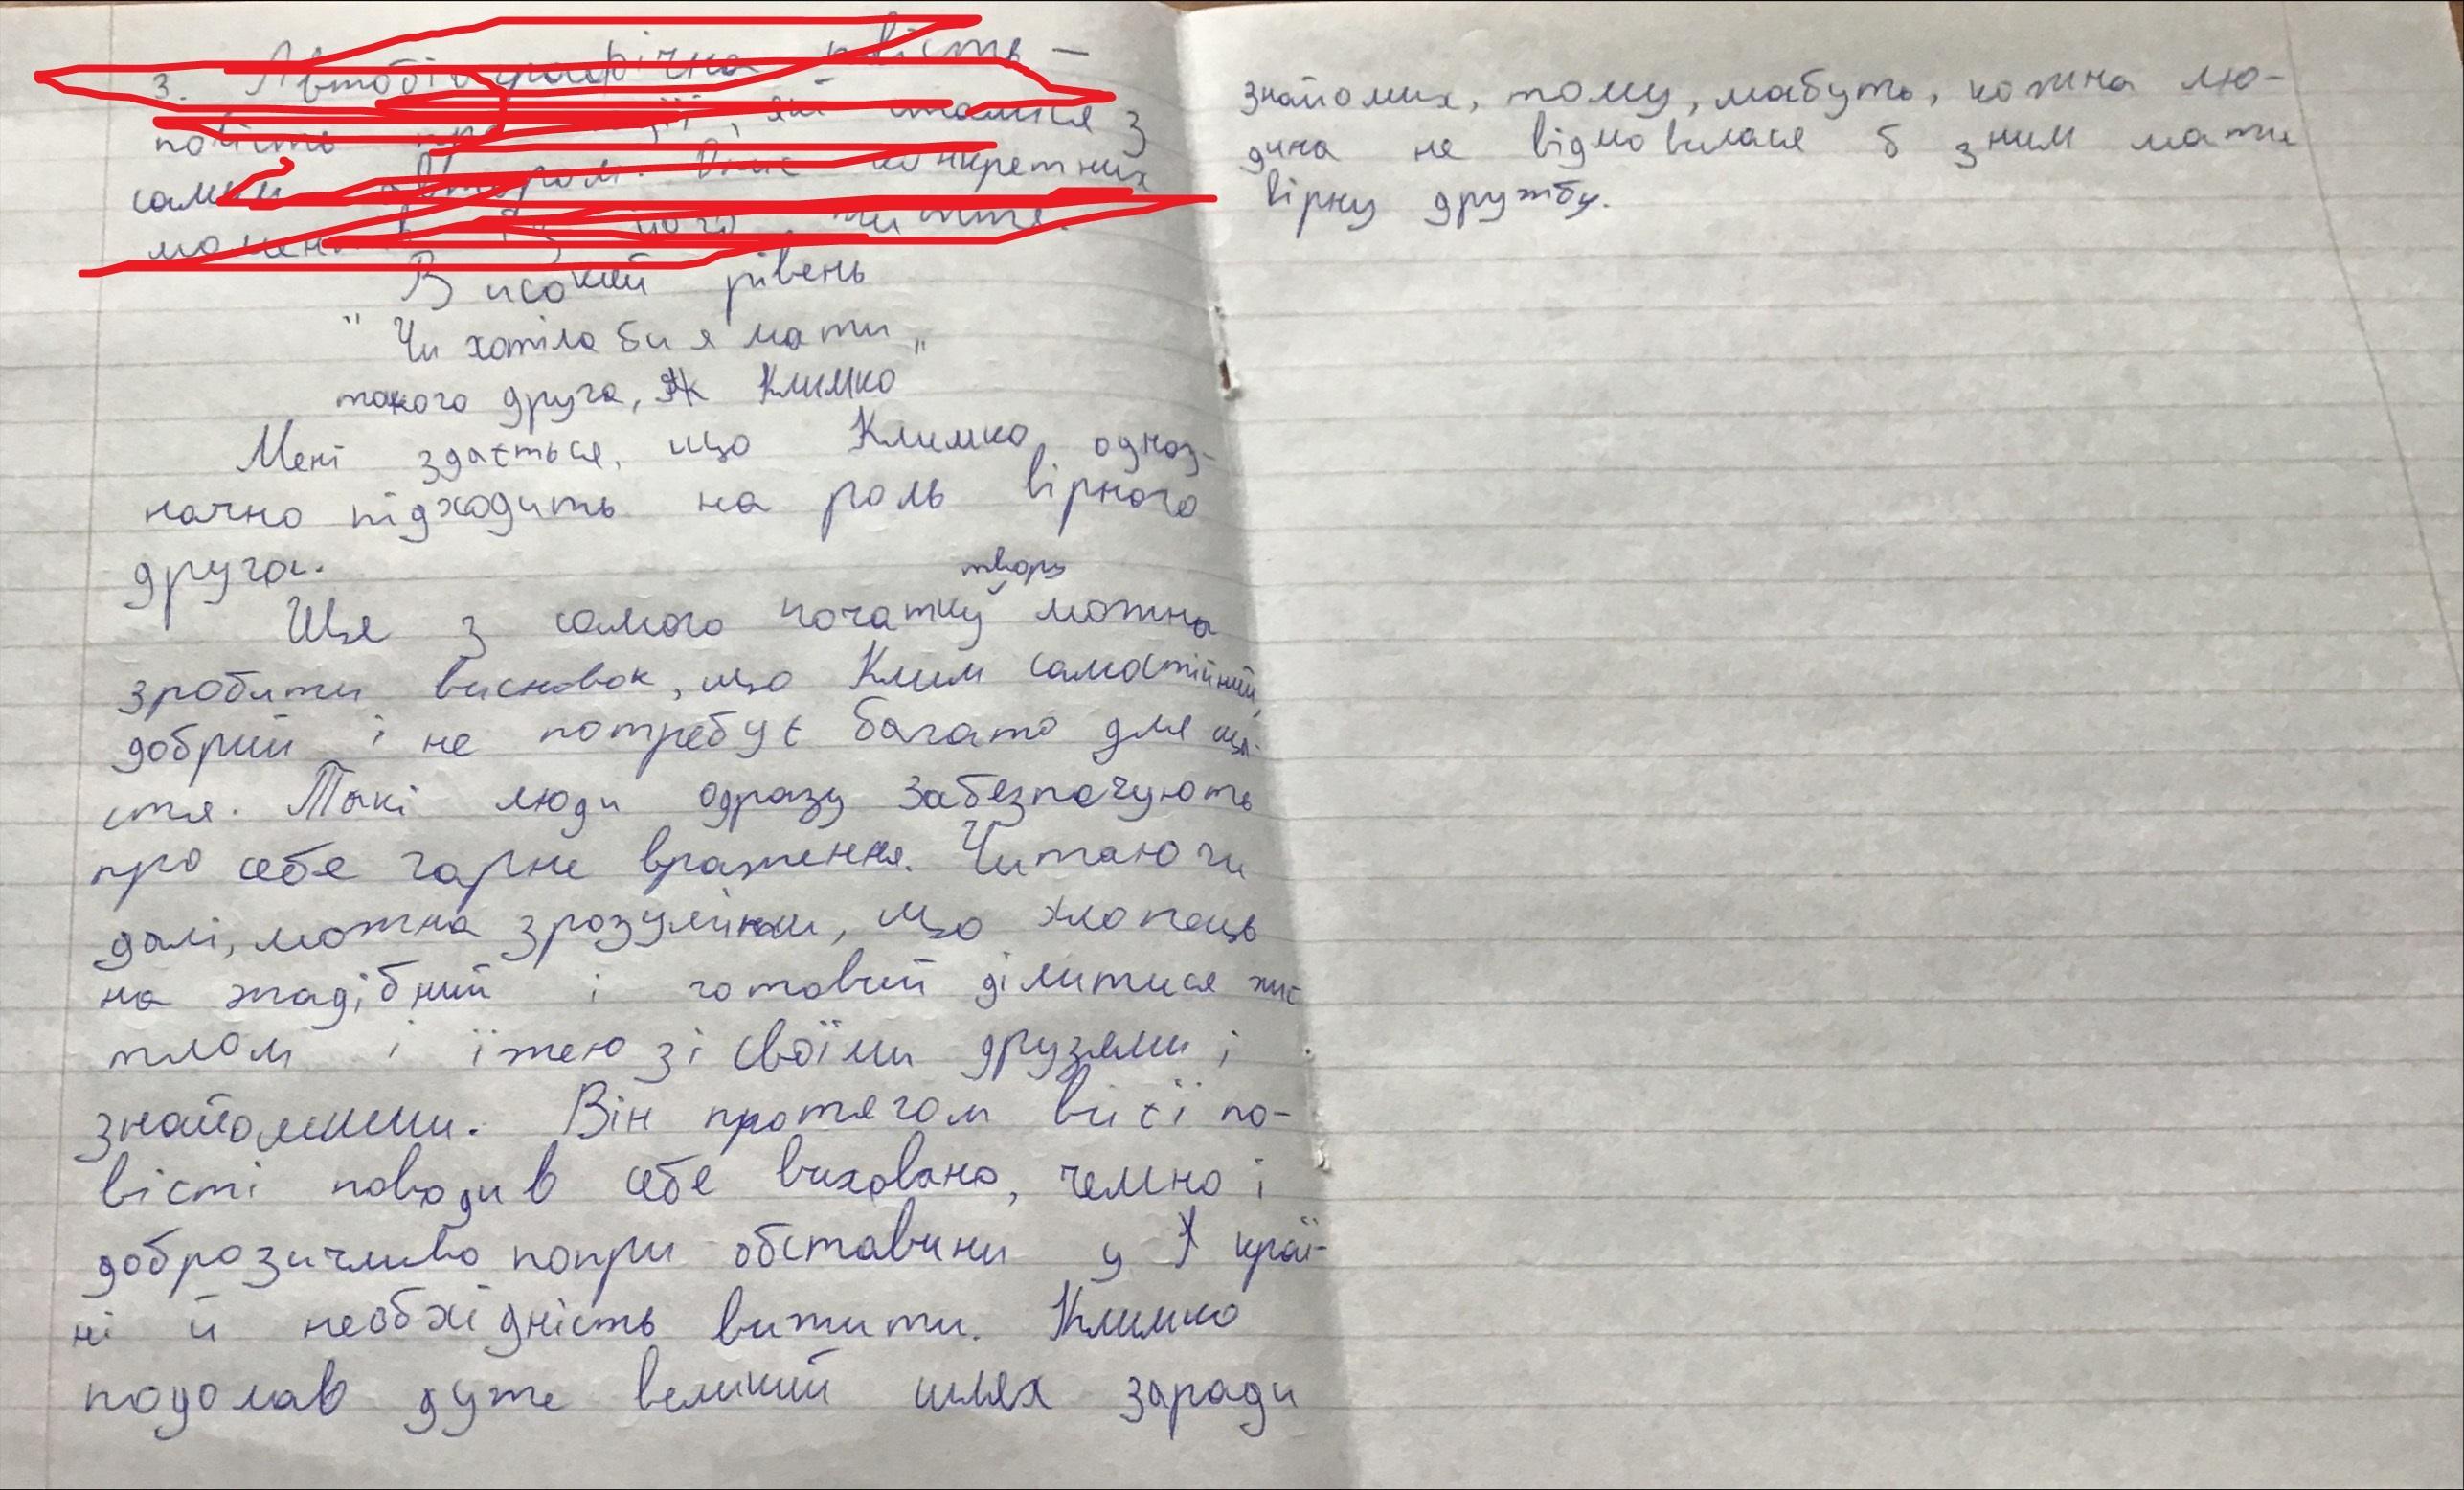 3. Автобіографічна повість —
повість про події, які сталися з
самим автором. Опис конкретних
моментів із його життя.
Високий рівень
"Чи хотіла би я мати"
такого друга, як Климко
Мені здається, що Климко одноз-
начно підходить на роль вірного
друга.
твору
Ще з самого початку можна
зробити висновок, що Клим самостійний,
добрий і не потребує багато для ща-
стя. Такі люди одразу забезпечують
про себе гарне враження. Читаючи
далі, можна зрозуміти, що хлопець
не жадібний і готовий ділитися жит
тлом і їжею зі своїми друзями і
знайомими. Він протягом всієї по-
вісті поводив себе виховано, чемно і
доброзичливо попри обставини у краї-
ні й необхідність вижити. Климко
подолав дуже великий шлях заради
знайомих, тому, мабуть, кожна лю-
дина не відмовилася б з ним мати
вірну дружбу.